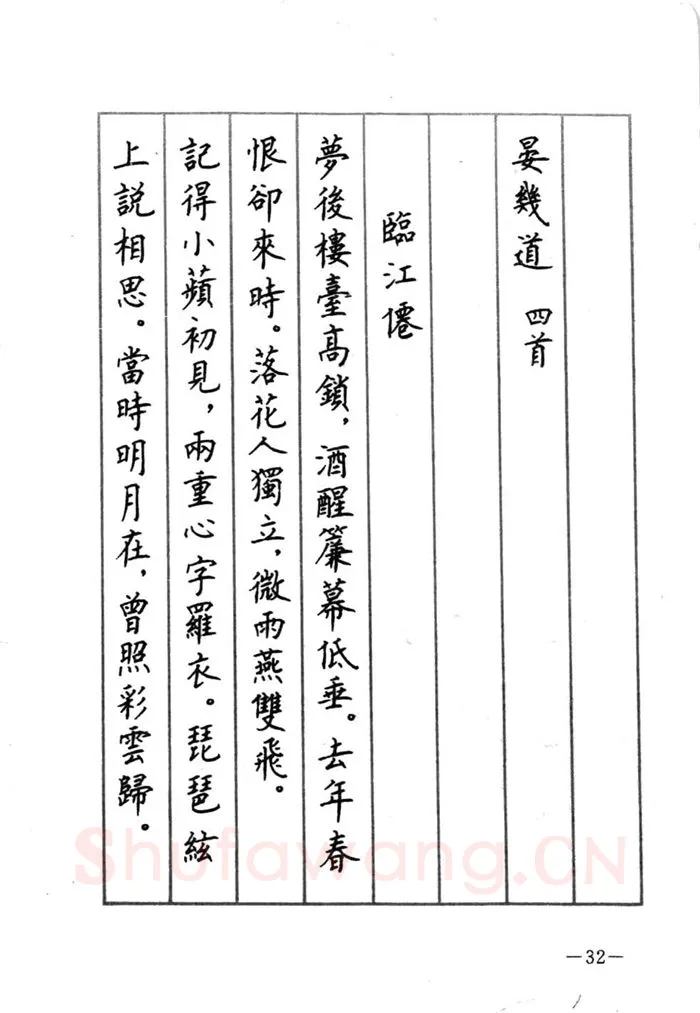 晏幾道　四首
臨江僊
夢後樓臺高鎖，酒醒簾幕低垂。去年春
恨卻來時。落花人獨立，微雨燕雙飛。
記得小蘋初見，兩重心字羅衣。琵琶絃
上説相思。當時明月在，曾照彩雲歸。
Shufawang.CN
—32—